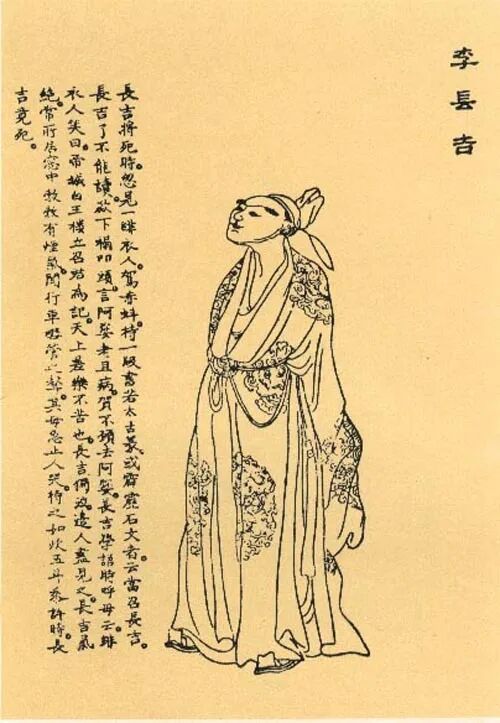 李長吉
長吉將死時。忽見一緋衣人駕赤虬持一版書若太古篆。或霹靂石文者。云當召長吉。
長吉了不能讀。欻下榻叩頭。言阿㜷老且病。賀不願去。阿㜷。長吉學語時呼母云。緋
衣人笑曰。帝城白玉樓立召君為記。天上差樂不苦也。長吉獨泣。邊人盡見之。長吉氣
絶。常所居窓中勃勃有煙氣。聞行車嘒管之聲。其母急止人哭。待之如炊五斗黍許時。長
吉竟死。